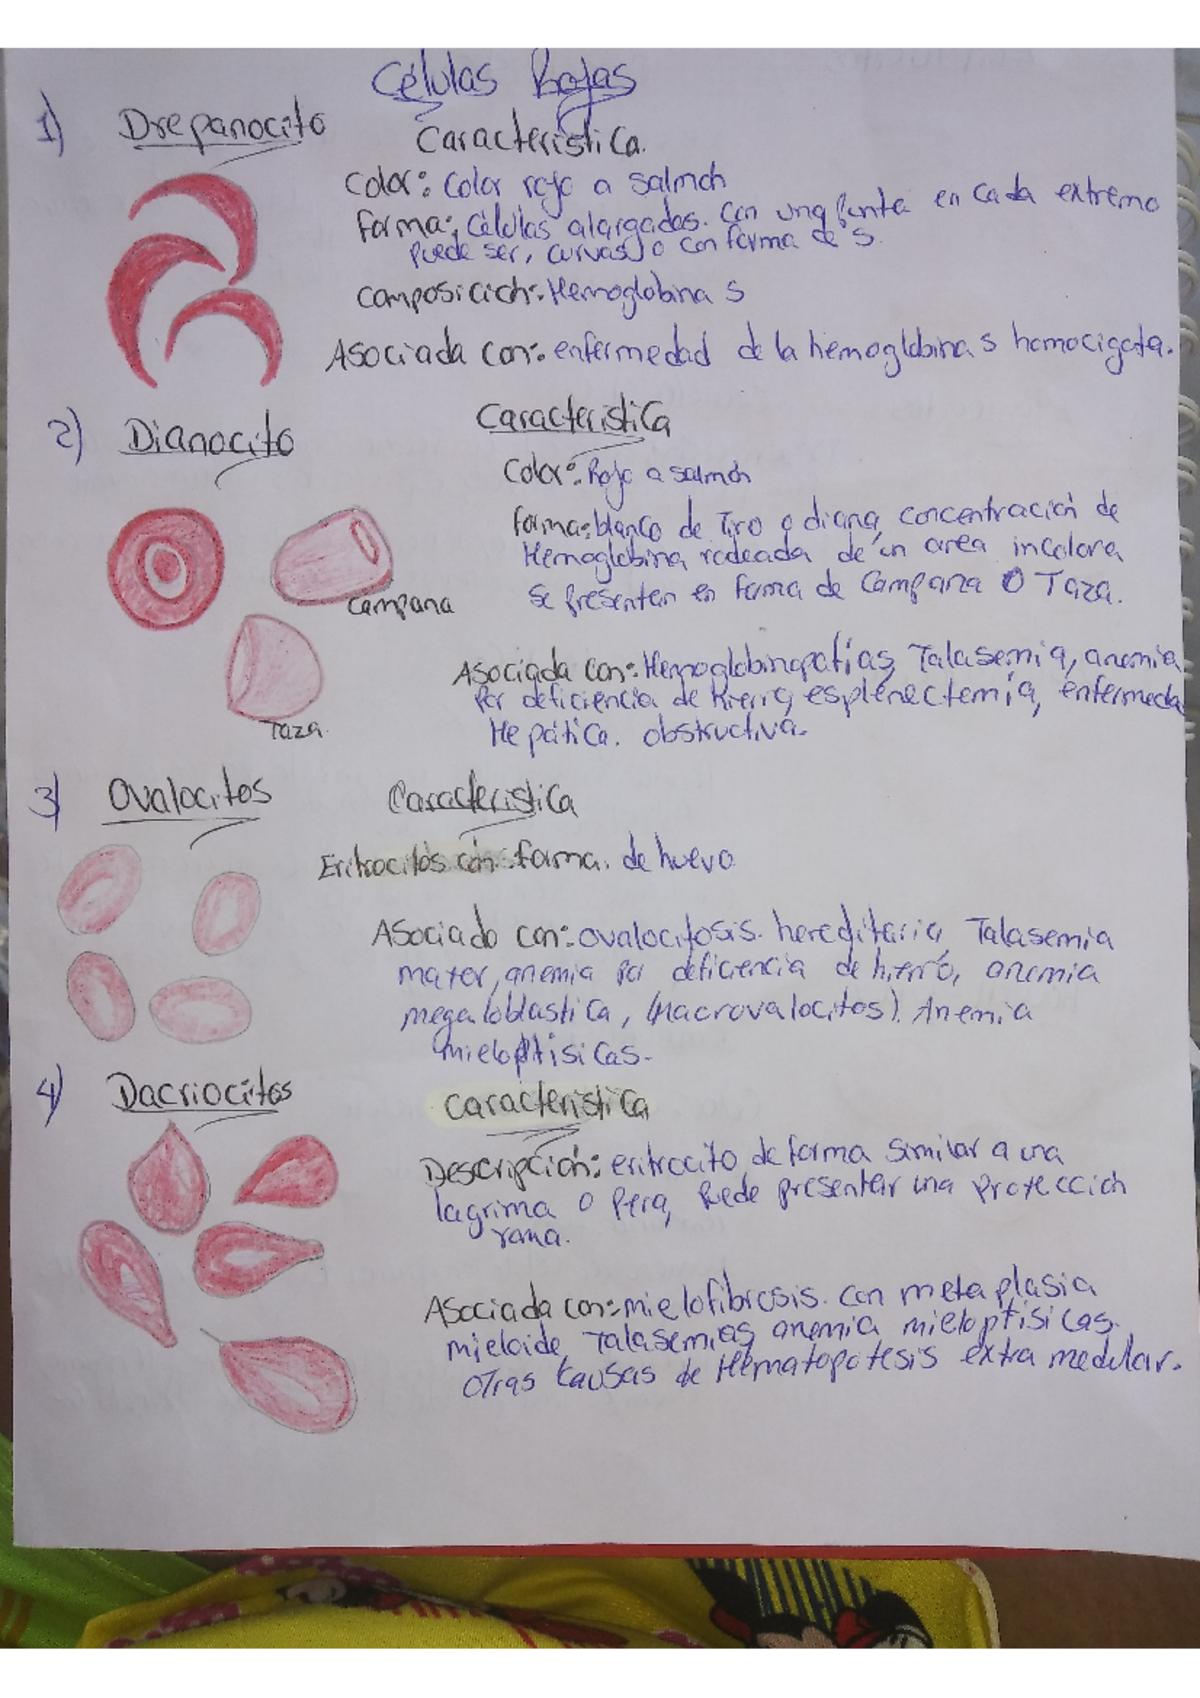 Células Rojas
1) Drepanocito
Caracteristica.
Color: Color rojo a salmón
Forma: Células alargadas. Con una punta en cada extremo
Puede ser, curvas o con forma de S.
Composición: Hemoglobina S
Asociada con: enfermedad de la hemoglobina S homocigota.
2) Dianocito
Caracteristica
Color: Rojo a salmón
Forma: blanco de Tiro o diana, concentración de
Hemoglobina rodeada de un area incolora
Se presentan en forma de Campana O Taza.
Campana
Taza.
Asociada con: Hemoglobinopatías, Talasemia, anemia
Por deficiencia de hierro, esplenectemía, enfermeda
Hepática. obstructiva.
3) Ovalocitos
Caracteristica
Eritrocitos con: forma. de huevo
Asociado con: ovalocitosis. hereditaria, Talasemia
mayor, anemia Por deficiencia de hierro, anemia
megaloblastica, (Macrovalocitos). Anemia
mieloptisicas.
4) Dacriocitos
Caracteristica
Descripción: eritrocito de forma similar a una
lagrima o Pera, Puede presentar una Proyección
roma.
Asociada con: mielofibrosis. con metaplasia
mieloide, Talasemias, anemia mieloptisicas.
OTras Causas de Hematopoyesis extra medular.